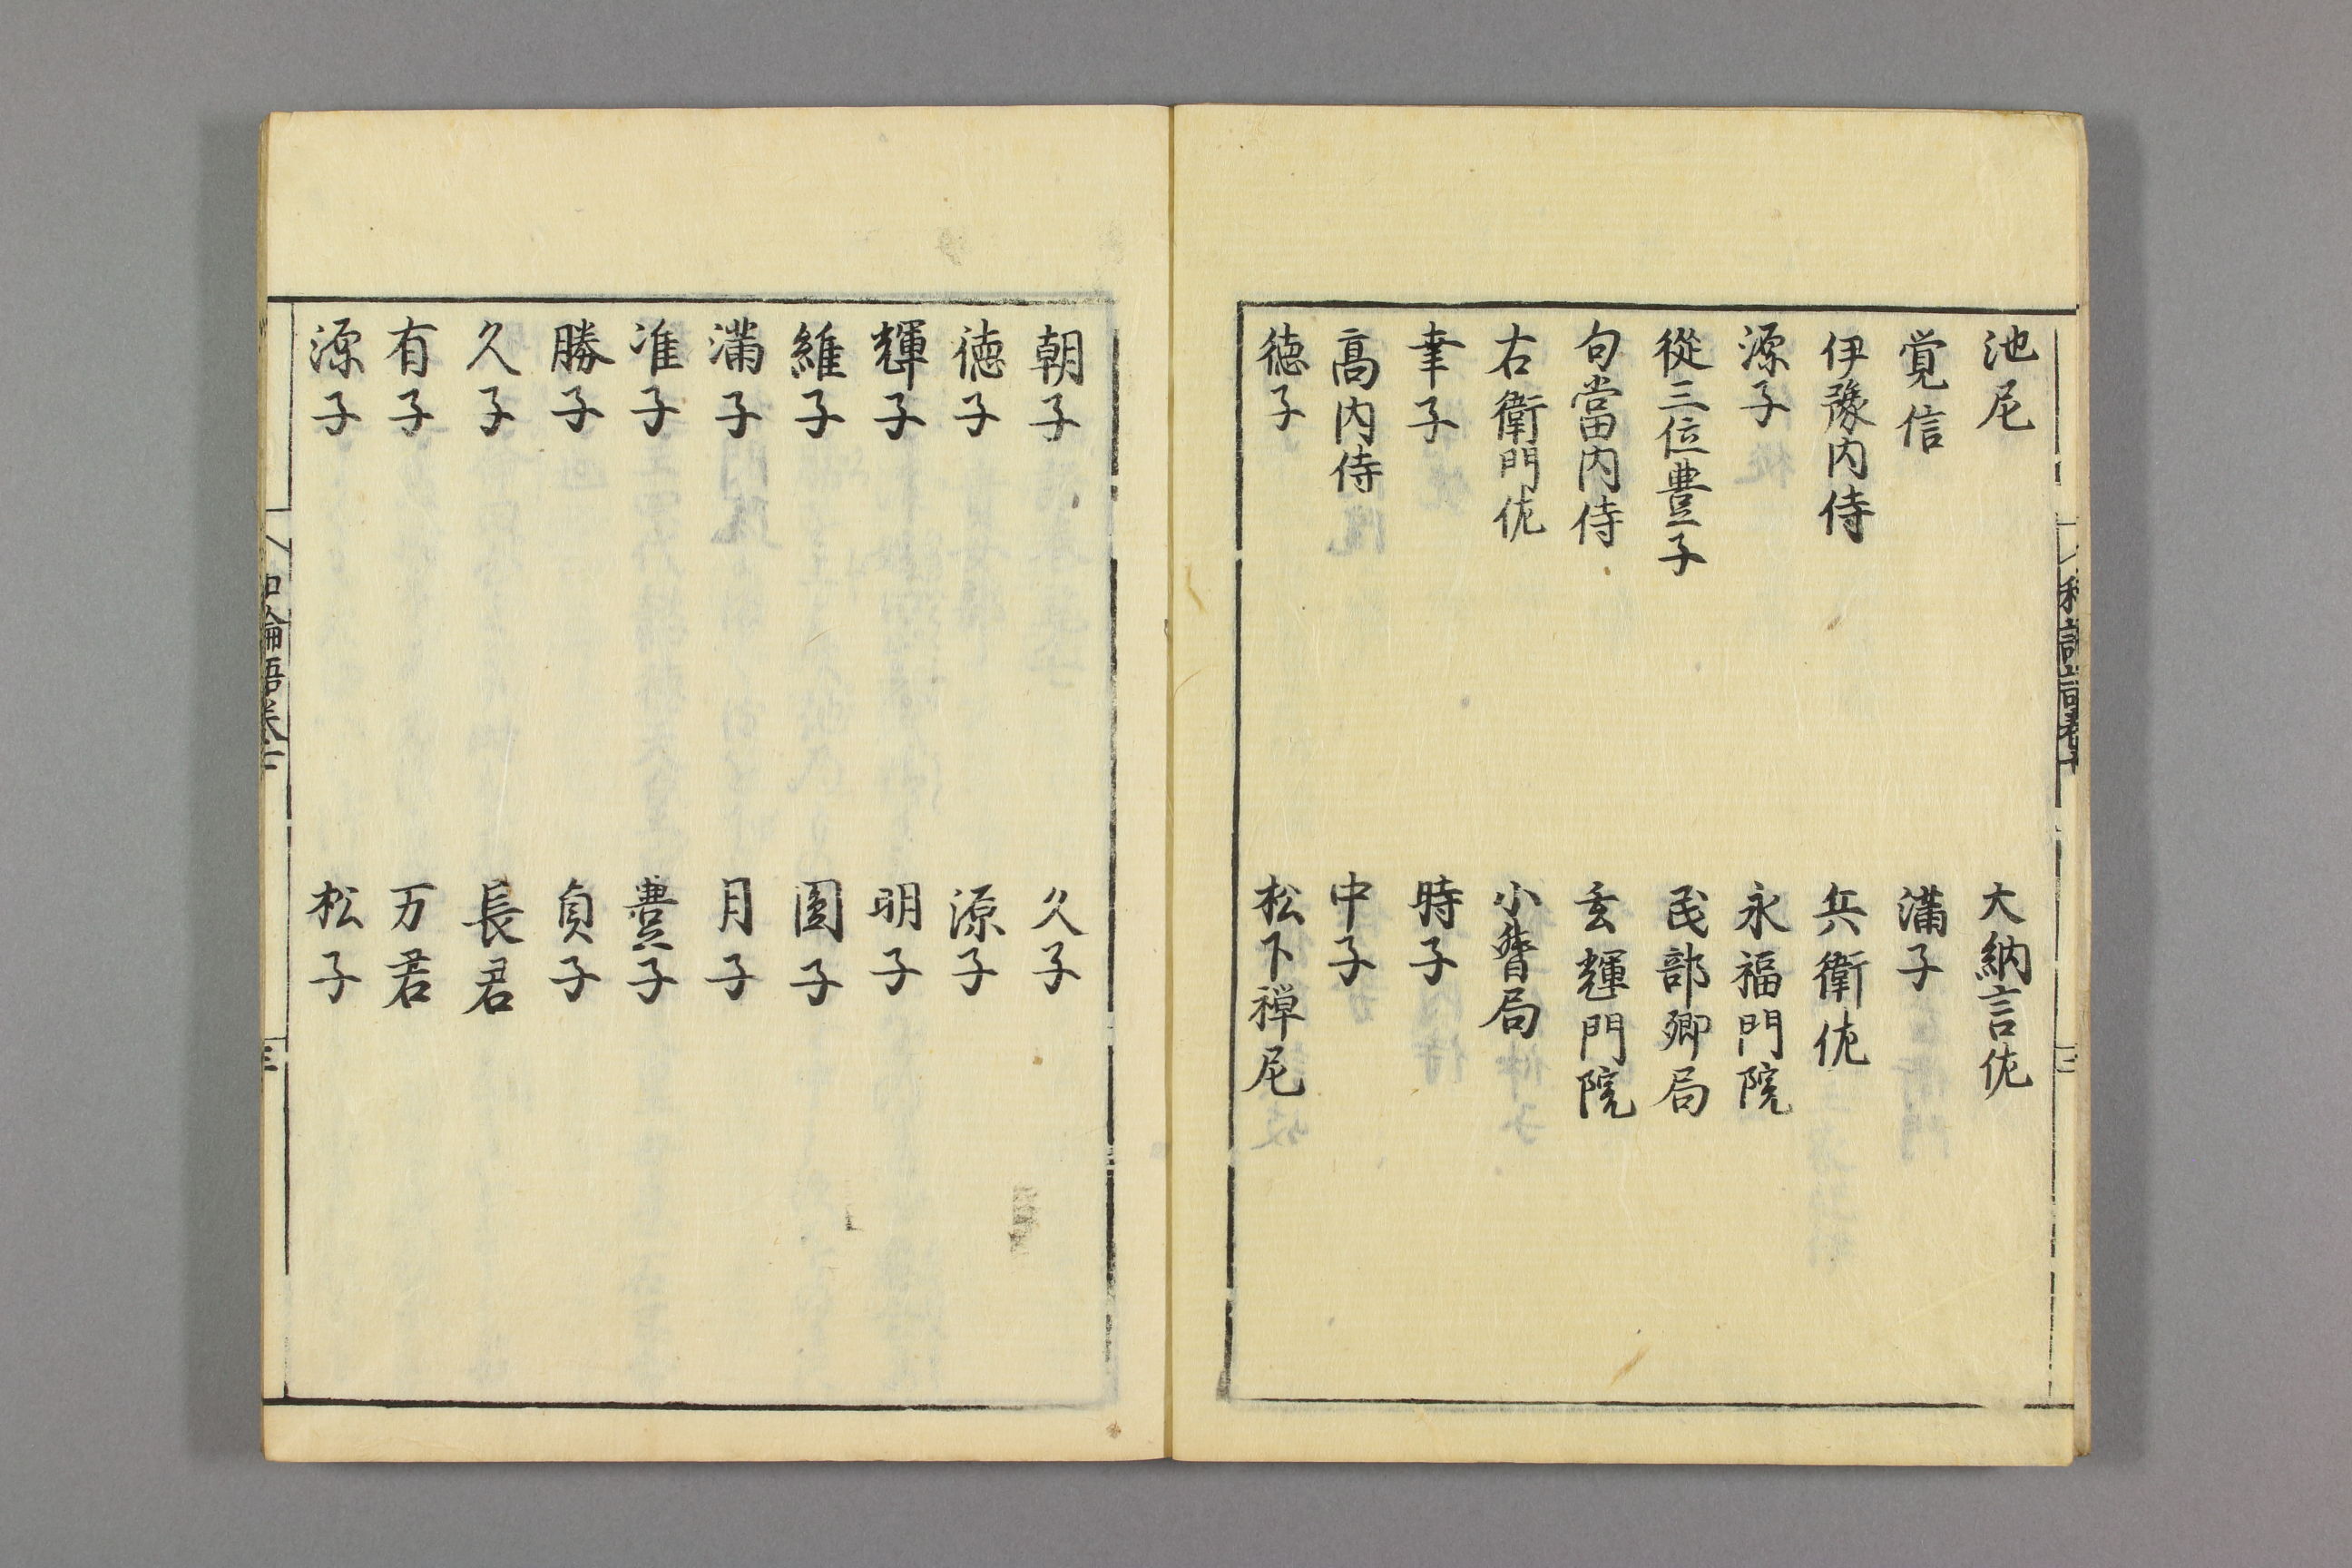 池尼　大納言佐
覚信　満子
伊豫内侍　兵衛佐
源子　永福門院
從三位豊子　民部卿局
句當内侍　玄輝門院
右衛門佐　小督局
聿子　時子
高内侍　中子
徳子　松下禅尼
朝子　久子
徳子　源子
輝子　明子
維子　圓子
満子　月子
准子　豊子
勝子　貞子
久子　長君
有子　万君
源子　松子
和論語巻
三